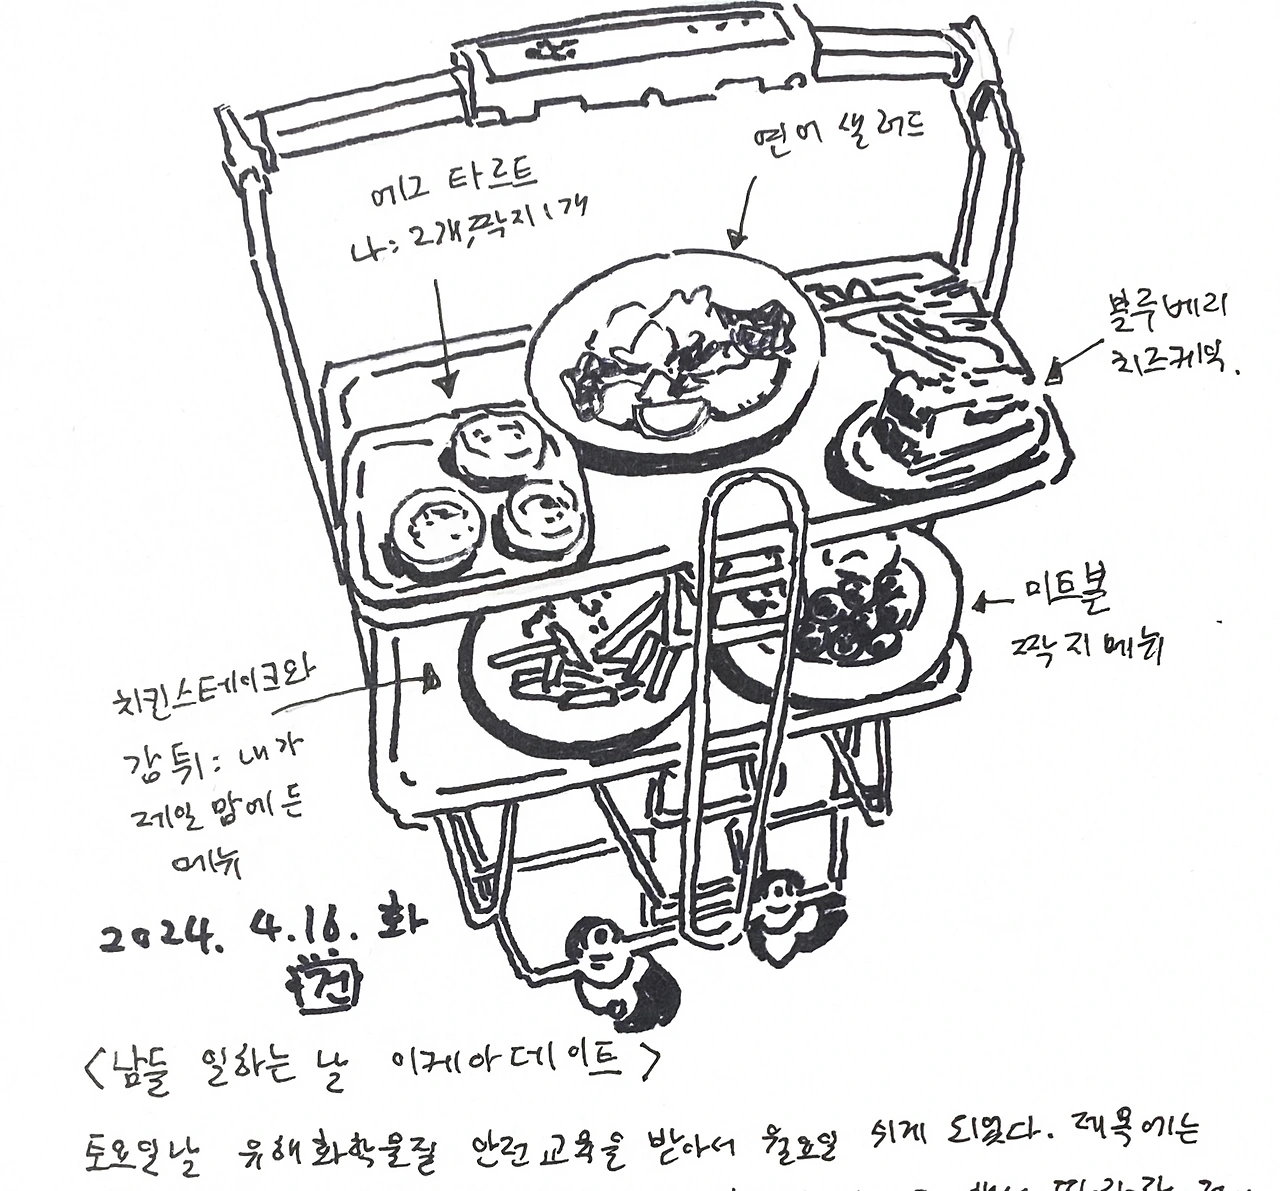 연어 샐러드
에그 타르트
나: 2개, 짝지 1개
블루베리
치즈케익.
미트볼
짝지 메뉴
치킨스테이크와
감튀: 내가
제일 맘에 든
메뉴
2024. 4.16. 화
건
<남들 일하는 날 이케아 데이트>
토요일날 유해화학물질 안전교육을 받아서 월요일 쉬게 되었다. 제목에는